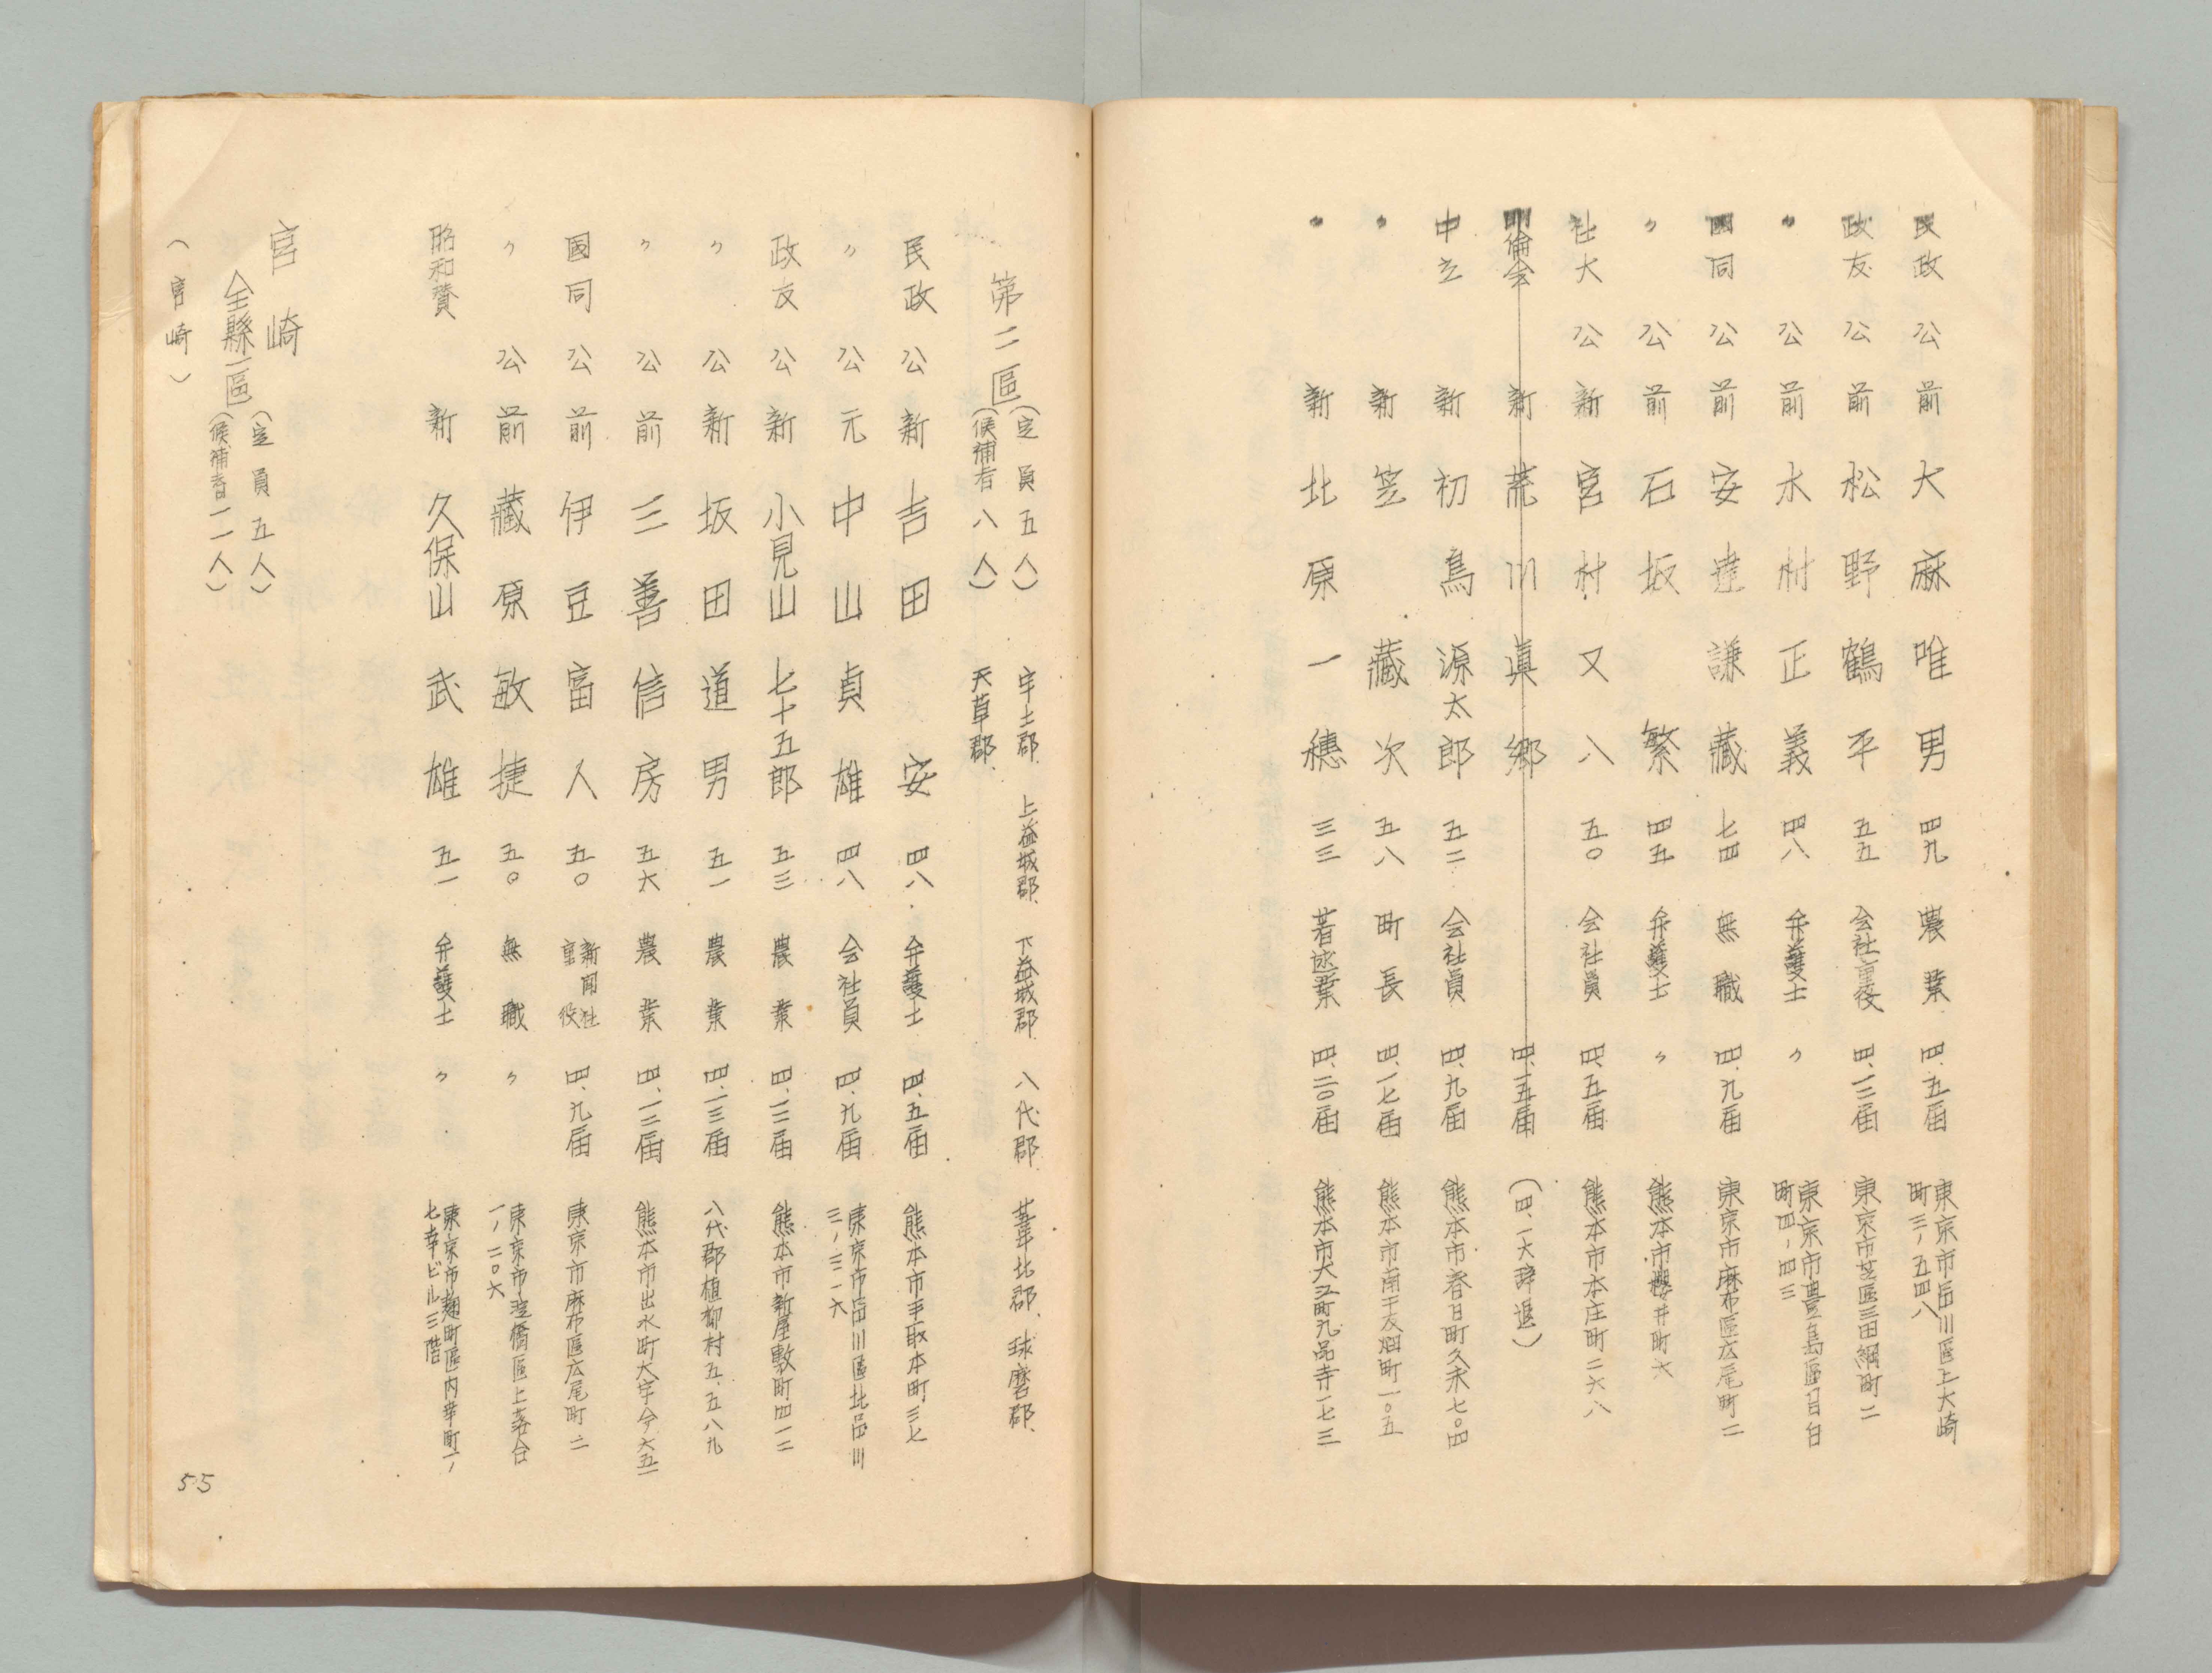 民政 公 前 大麻唯男 四九 農業 四、五届 東京市品川區上大崎
町三ノ五四八
政友 公 前 松野鶴平 五五 会社重役 四、一二届 東京市芝區三田綱町二
〃 公 前 木村正義 四八 弁護士 〃 東京市豊島區目白
町四ノ四三
國同 公 前 安達謙藏 七四 無職 四、九届 東京市麻布區広尾町二
〃 公 前 石坂繁 四五 弁護士 〃 熊本市櫻井町六
社大 公 新 宮村又八 五〇 会社員 四、五届 熊本市本庄町二六八
明倫会 新 荒川眞郷 四、一五届 (四、一六辞退)
中立 新 初鳥源太郎 五二 会社員 四、九届 熊本市春日町久末七〇四
〃 新 笠藏次 五八 町長 四、一七届 熊本市南千反畑町一〇五
〃 新 北原一穗 三三 著述業 四、二〇届 熊本市大江町九品寺一七三
第二區 (定員五人) 宇土郡、上益城郡、下益城郡、八代郡、葦北郡、球磨郡、
(候補者八人) 天草郡、
民政 公 新 吉田安 四八 弁護士 四、五届 熊本市手取本町三七
〃 公 元 中山貞雄 四八 会社員 四、九届 東京市品川區北品川
三ノ三一六
政友 公 新 小見山七十五郎 五三 農業 四、一二届 熊本市新屋敷町四一二
〃 公 新 坂田道男 五一 農業 四、一三届 八代郡植柳村五、五八九
〃 公 前 三善信房 五六 農業 四、一三届 熊本市出水町大字今六五一
國同 公 前 伊豆富人 五〇 新聞社重役 四、九届 東京市麻布區広尾町二
〃 公 前 藏原敏捷 五〇 無職 〃 東京市淀橋區上落合
一ノ二〇六
昭和會 新 久保山武雄 五一 弁護士 〃 東京市麹町區内幸町一ノ
七幸ビル三階
宮崎
全縣一區 (定員五人)
(候補者一一人)
(宮崎)
55